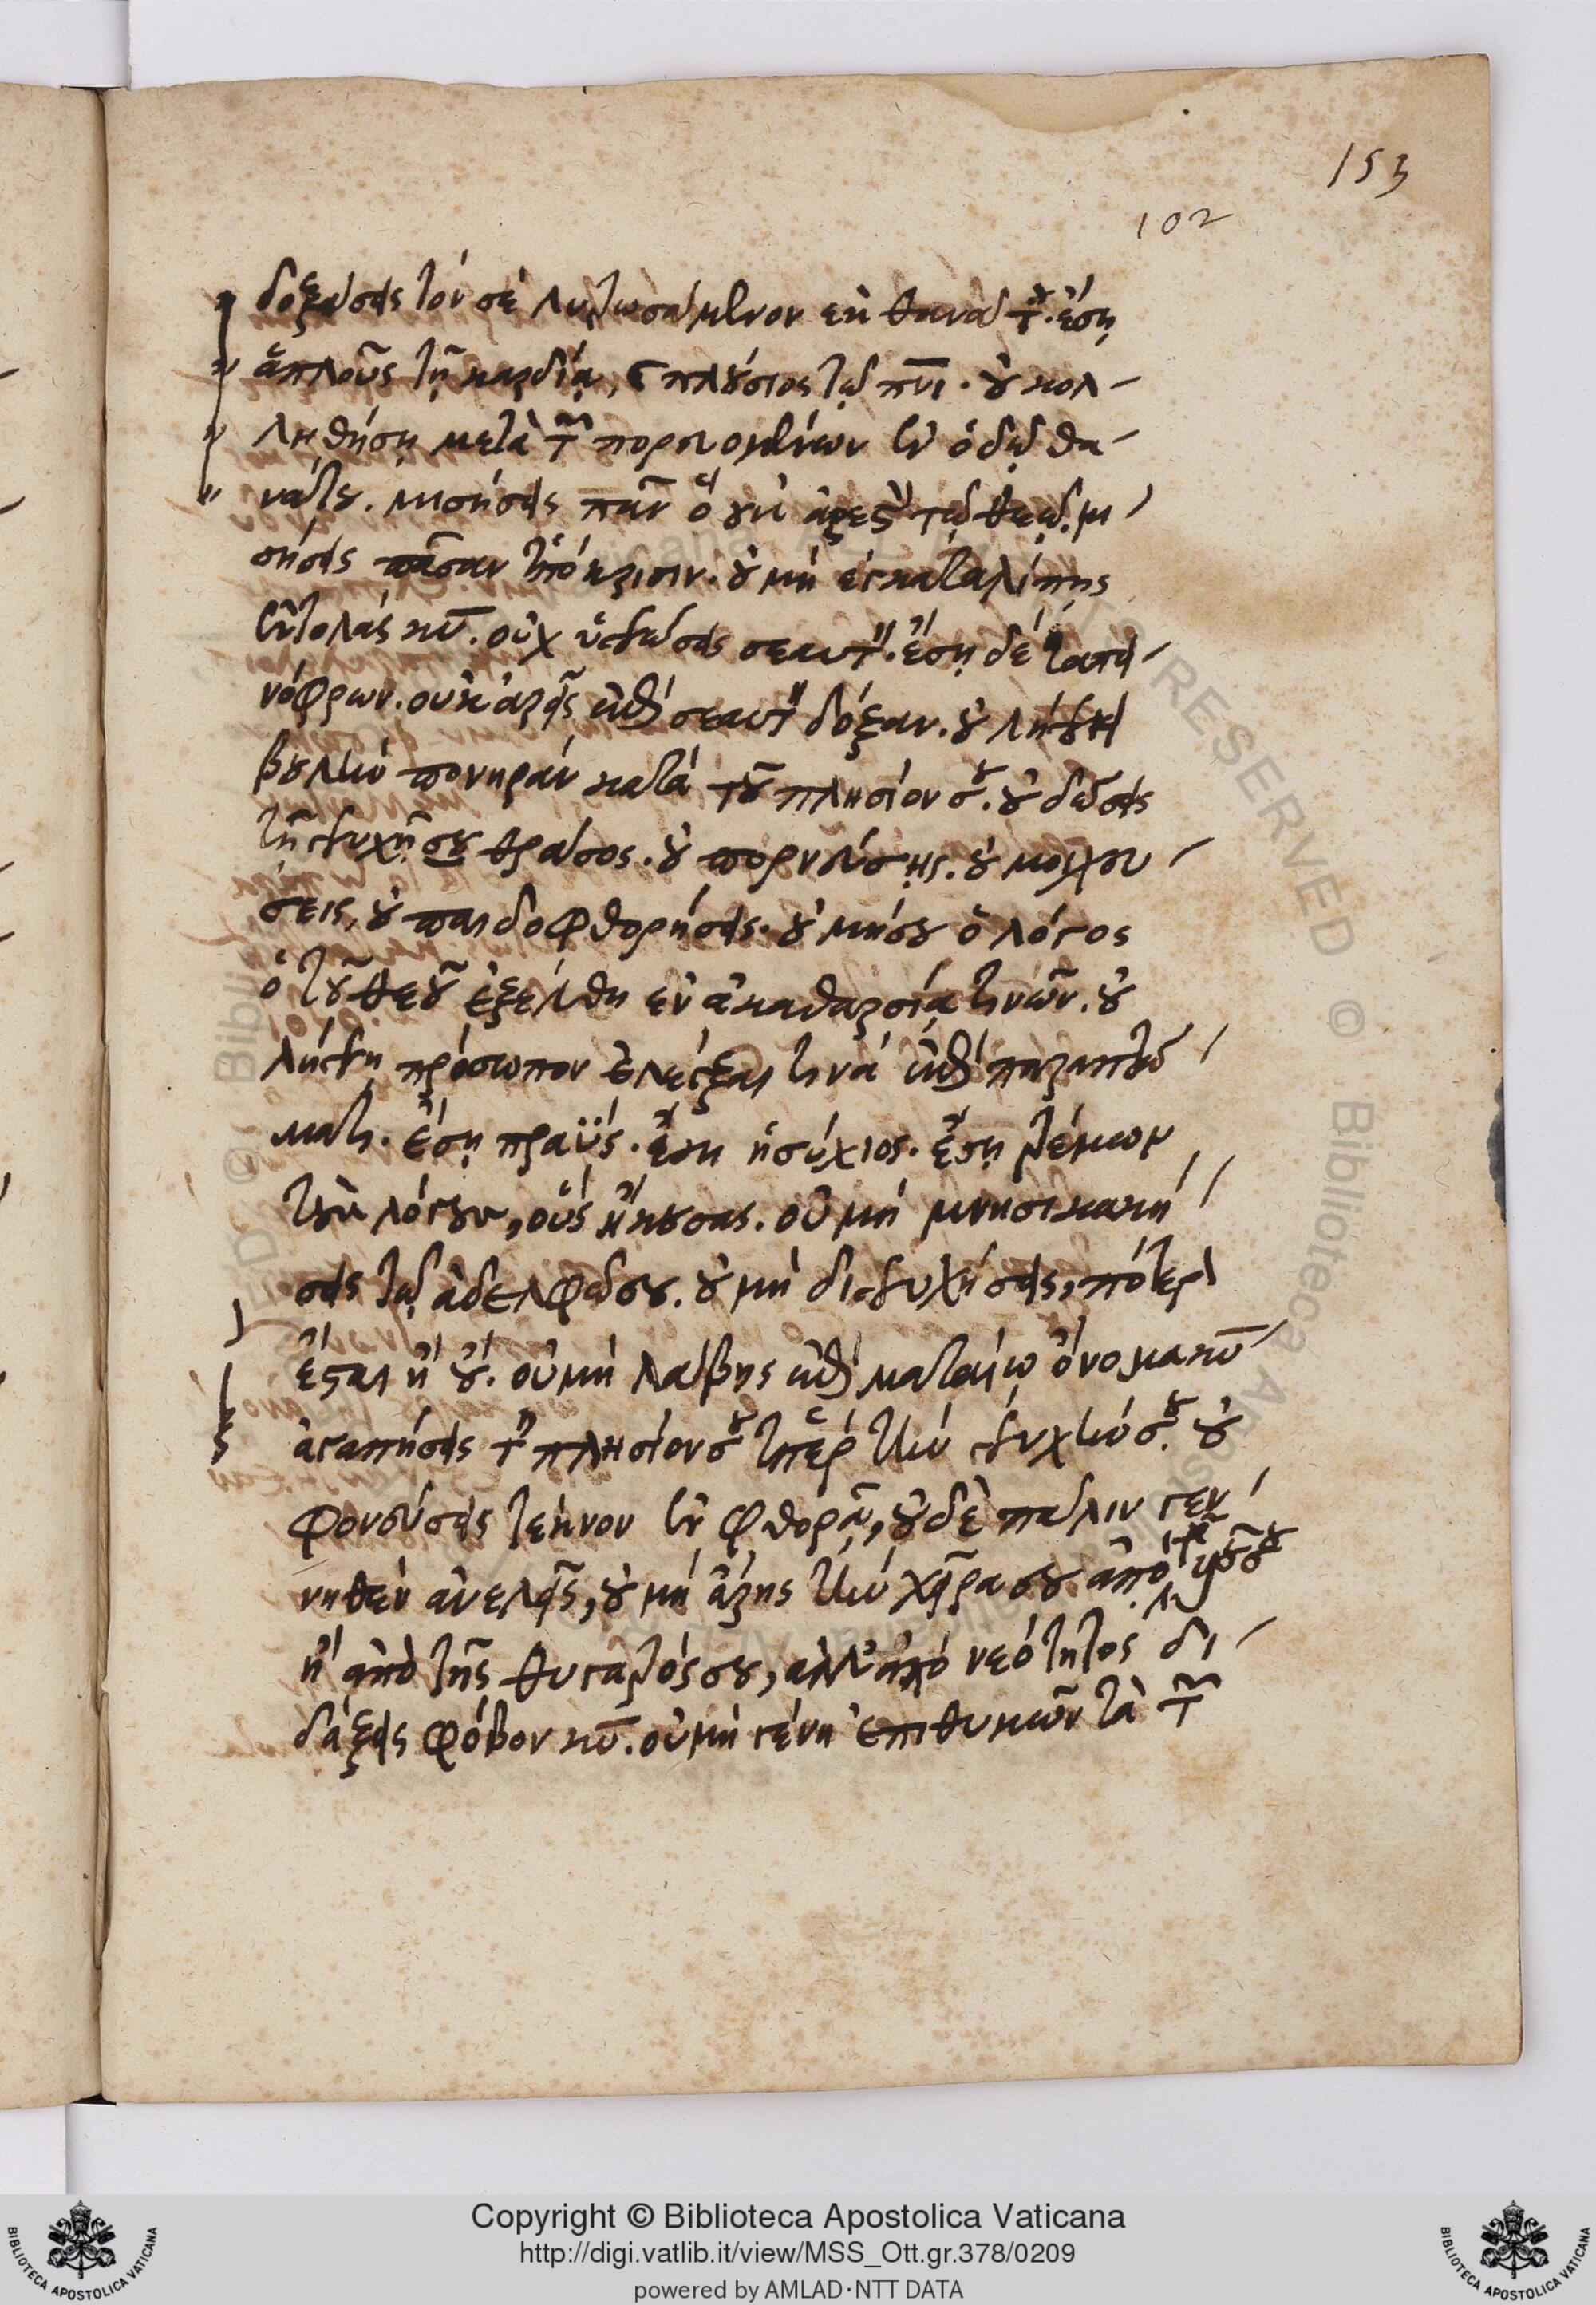 153
102
δοξάσεις τόν σέ λυτρωσάμενον ἐκ θανάτου. ἔση
ἁπλοῦς τῇ καρδίᾳ, ϛ πλούσιος τῷ πνι. οὐ κολ-
ληθήσῃ μετὰ τῶν πορευομένων ἐν ὁδῷ θα-
νάτου. μισήσεις πᾶν ὅ οὐκ ἀρεστὸν τῷ θεῷ. μι
σήσεις πᾶσαν ὑπόκρισιν. οὐ μή ἐγκαταλίπης
ἐντολάς κυ. οὐχ ὑψώσεις σεαυτὸν. ἔσῃ δέ ταπει-
νόφρων. οὐκ ἀρεῖς ἐπί σεαυτὸν δόξαν. οὐ λήψει
βουλήν πονηράν κατά τοῦ πλησίον σου. οὐ δώσεις
τῇ ψυχῇ σου θράσος. οὐ πορνεύσῃς. οὐ μοιχεύ-
σεις, οὐ παιδοφθορήσεις. οὐ μήσου ὁ λόγος
ὁ τοῦ θεοῦ ἐξέλθη ἐν ἀκαθαρσίᾳ τινῶν. οὐ
λήψῃ πρόσωπον ἐλέγξαι τινά ἐπί παραπτώ
ματι. ἔσῃ πραΰς. ἔση ἡσύχιος. ἔσῃ τρέμων
τοὺς λόγους, οὕς ἤκουσας. οὐ μή μνησικακή
σεις τῷ ἀδελφῷ σου. οὐ μή διψυχήσεις, πότερον
ἔσται ἤ οὐ. οὐ μή λάβης ἐπί ματαίῳ ὄνομα κυ
ἀγαπήσεις τὸν πλησίον σου ὑπέρ τήν ψυχήν σου. οὐ
φονεύσεις τέκνον ἐν φθορᾷ, οὐδὲ πάλιν γεν
νηθέν ἀνελεῖς, οὐ μή ἄρης τήν χεῖρα σου ἀπό τοῦ υἱοῦ σου
ἤ ἀπὸ τῆς θυγατρός σου, ἀλλ' ἀπό νεότητος δι-
δάξεις φόβον κυ. οὐ μή γένη ἐπιθυμῶν τὰ τῶν
Copyright © Biblioteca Apostolica Vaticana
http://digi.vatlib.it/view/MSS_Ott.gr.378/0209
powered by AMLAD·NTT DATA